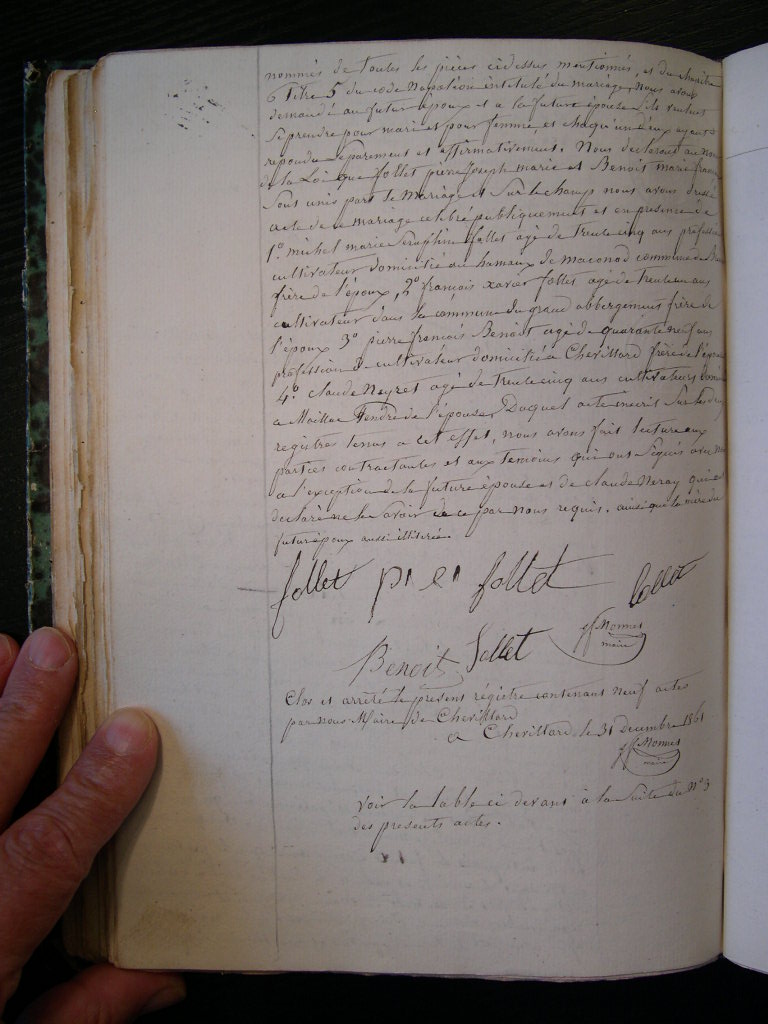 nommés de toutes les pièces cidessus mentionnés, et du chapitre
6 Titre 5 du code Napoléon intitulé du mariage, Nous avons
demandé au futur époux et a la future épouse s'ils veulent
se prendre pour mari et pour femme, et chaqu'un d'eux ayant
repondu séparement et affirmativement. Nous declarons au nom
de la Loi que follet pierre Joseph marie et Benoit marie
sont unis par le Mariage et sur le champ nous avons dressé
acte de ce mariage célébré publiquement et en presence de
1º. michel marie Seraphin follet agé de trente cinq ans profession
cultivateur domicilié au hamaux de maconod commune de
frère de l'époux, 2º françois xavier follet agé de trente un ans
cultivateur dans la commune du grand abbergement frère de
l'époux 3º pierre françois Benoit agé de quarante neuf ans
profession de cultivateur domicilié à Chevillard frère de l'épouse
4º. claude Neyret agé de trente cinq ans cultivateurs
a Maillat Gendre de l'épouse, Duquel acte inscrit sur les deux
registres tenus a cet effet, nous avons fait lecture aux
parties contractantes et aux temoins qui ont signés avec nous
a l'exception de la future épouse et de claude Neray qui ont
declaré ne le savoir de ce par nous requis. ainsi que la mère du
futur époux aussi illitérée.
follet pier follet follet
Benoit follet Monnet
maire
Clos et arrêté le présent régistre contenant neuf actes
par nous Maire de Chevillard
a Chevillard le 31 decembre 1861
Monnet
maire
voir la table ci devant à la suite du Nº 3
des presents actes.